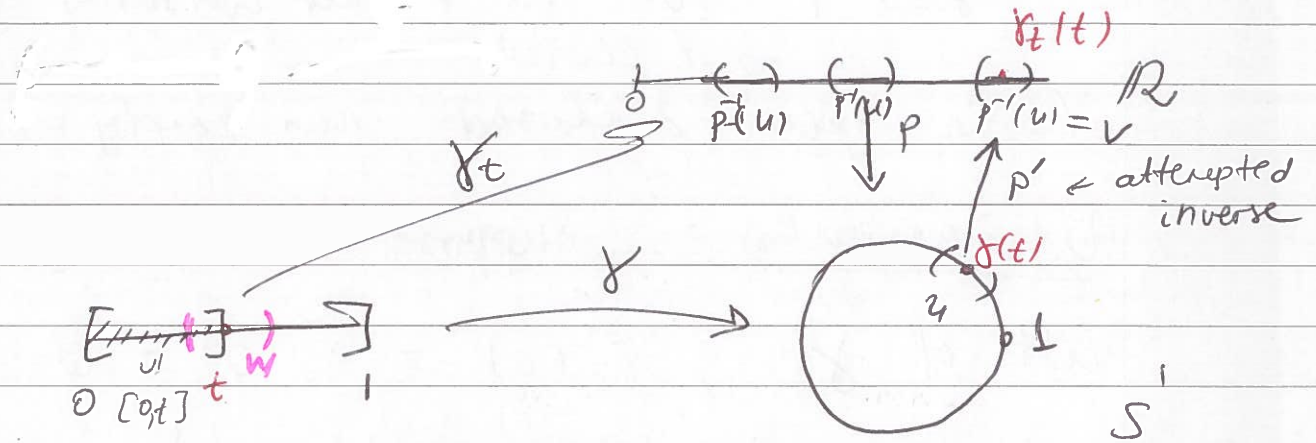 γ_t(t)
0 p⁻¹(u) p⁻¹(u) p⁻¹(u) = V ℝ
γ_t p p' ← attempted
inverse
γ γ(t)
u 1
[ ] W
0 [0,t] t 1 S¹